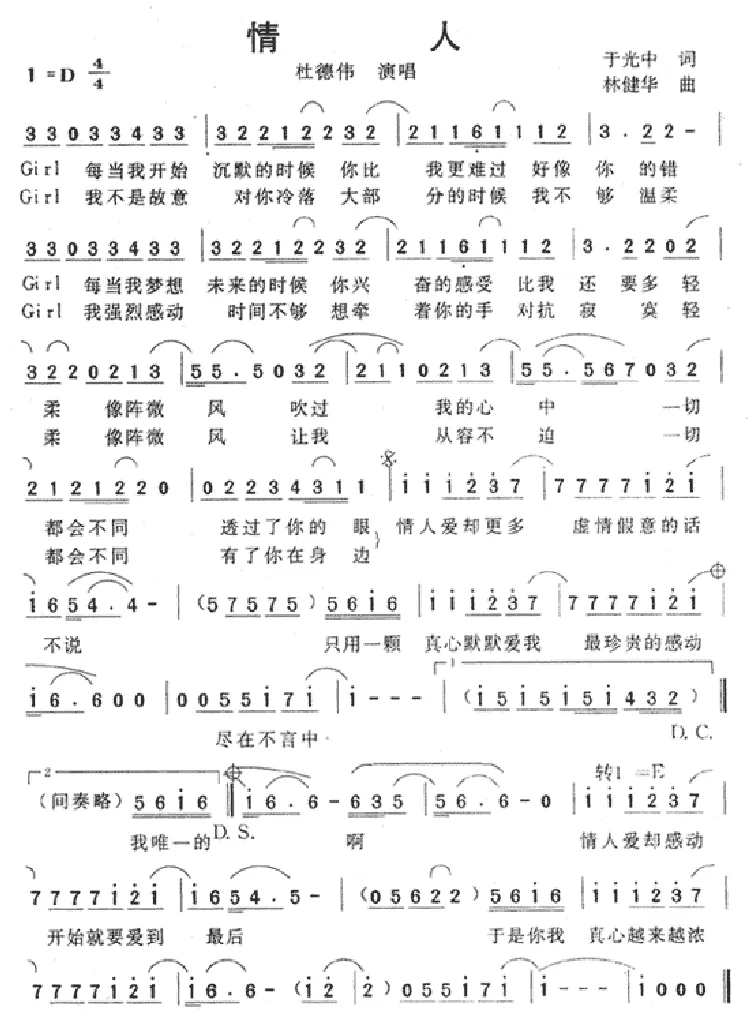 情 人
1=D 4/4 杜德伟 演唱 于光中 词
林健华 曲
33033433 | 32212232 | 21161112 | 3·22-
Girl 每当我开始 沉默的时候 你比 我更难过 好像 你 的错
Girl 我不是故意 对你冷落 大部 分的时候 我不 够 温柔
33033433 | 32212232 | 21161112 | 3·2202
Girl 每当我梦想 未来的时候 你兴 奋的感受 比我 还 要多 轻
Girl 我强烈感动 时间不够 想牵 着你的手 对抗 寂 寞 轻
3220213 | 55·5032 | 2110213 | 55·567032
柔 像阵微 风 吹过 我的心 中 一切
柔 像阵微 风 让我 从容不 迫 一切
2121220 | 02234311 | i i i 2 3 7 | 7 7 7 7 i 2 i
都会不同 透过了你的 眼 情人爱却更多 虚情假意的话
都会不同 有了你在身 边
i 6 5 4·4- | (57575) 5 6 i 6 | i i i 2 3 7 | 7 7 7 7 i 2 i
不说 只用一颗 真心默默爱我 最珍贵的感动
i 6·600 | 0055i7i | i--- | (i5i5i5i432)
尽在不言中 D.C.
2 转1=E
(间奏略) 5 6 i 6 | i 6·6-635 | 56·6-0 | i i i 2 3 7
我唯一的 D.S. 啊 情人爱却感动
7 7 7 7 i 2 i | i 6 5 4·5- | (05622) 5 6 i 6 | i i i 2 3 7
开始就要爱到 最后 于是你我 真心越来越浓
7 7 7 7 i 2 i | i 6·6- (i 2 | 2) 0 5 5 i 7 i | i--- | i000